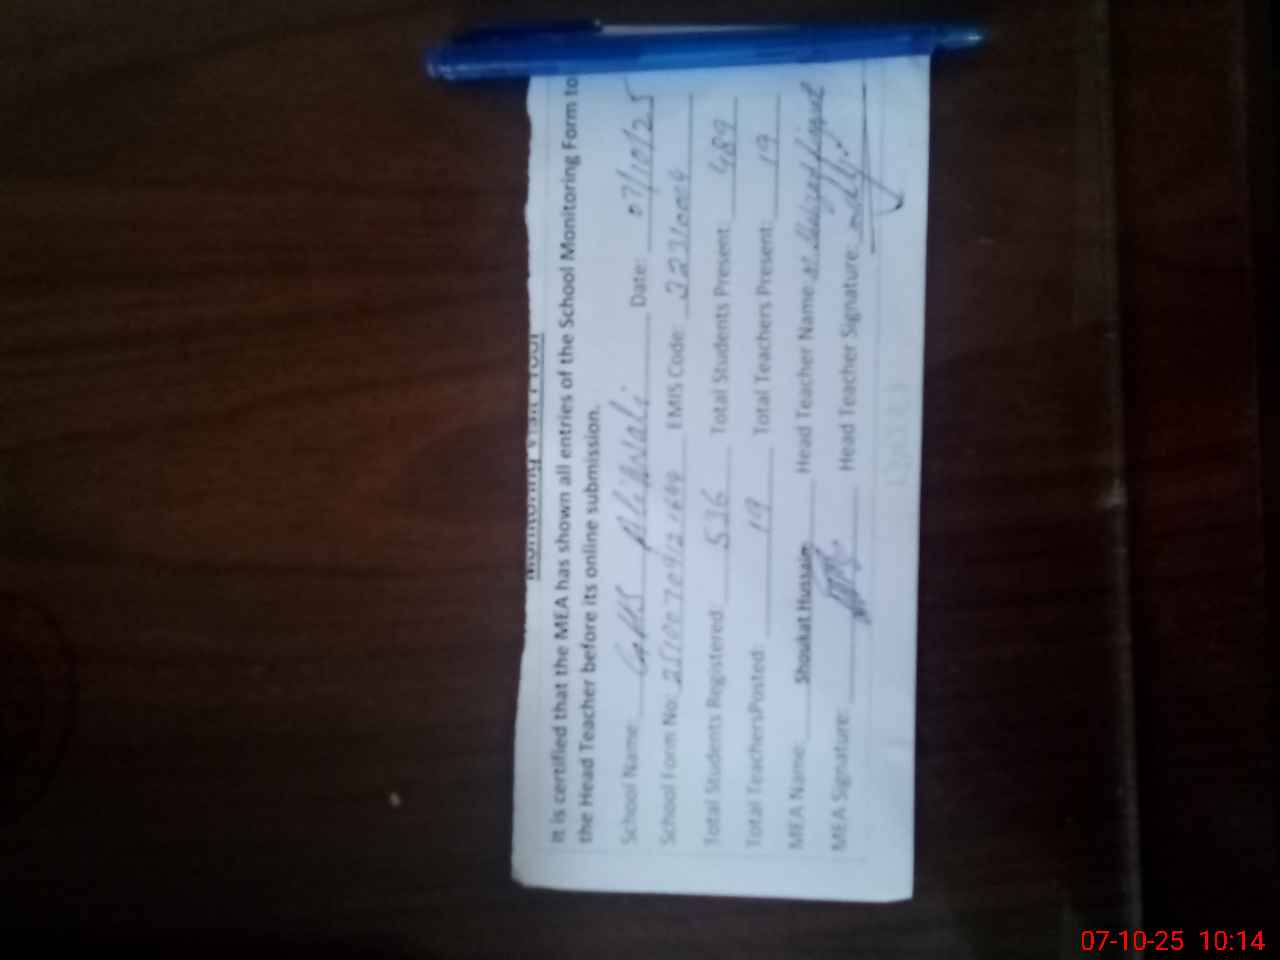 Monitoring Visit Proof
It is certified that the MEA has shown all entries of the School Monitoring Form to
the Head Teacher before its online submission.
School Name: GHS Aliwali Date: 07/10/25
School Form No: EMIS Code:
Total Students Registered: 536 Total Students Present: 489
Total TeachersPosted: 19 Total Teachers Present: 19
MEA Name: Shoukat Hussain Head Teacher Name:
MEA Signature: Head Teacher Signature:
07-10-25 10:14